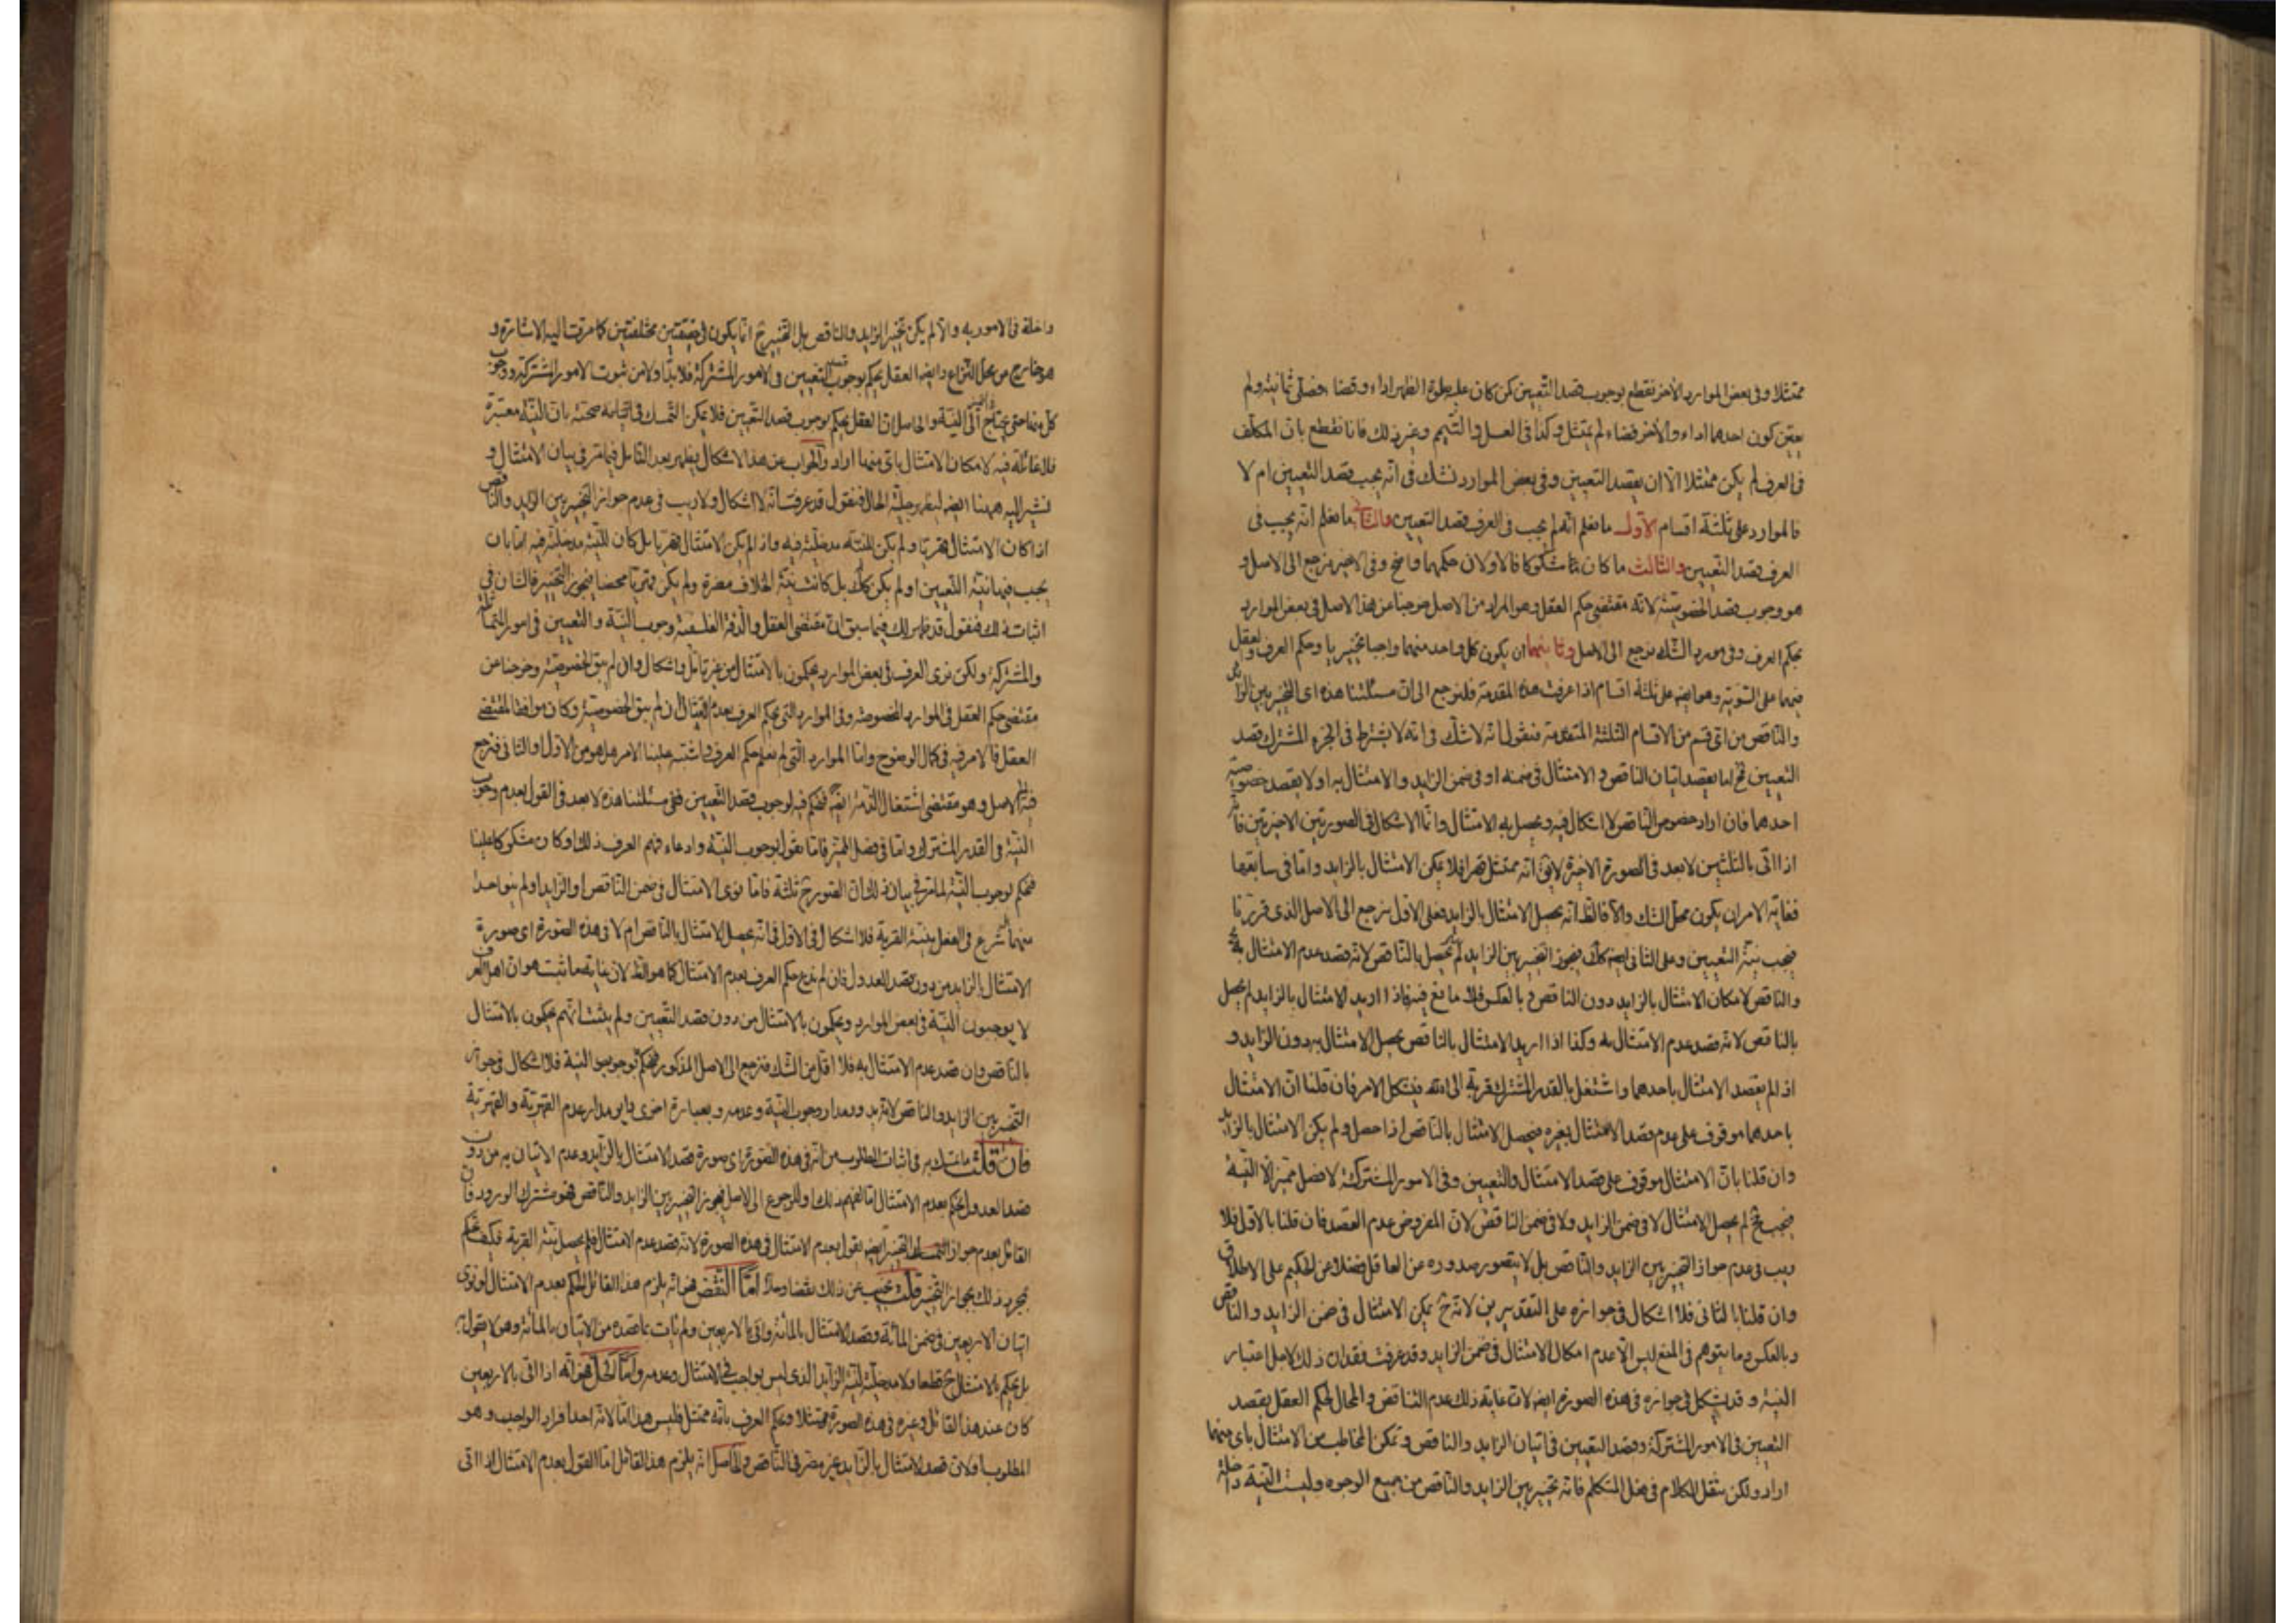 ممتثلا وفى بعض الموارد الأخر نقطع بوجوب قصد التعيين كمن كان عليه صلوة الظهر اداء وقضاء فصلّى ثمانية ولم
يعيّن كون احدهما اداء والأخر قضاء لم يمتثل وكذا فى الغسل والتيمم وغير ذلك فانا نقطع بان المكلف
فى العرف لم يكن ممتثلا الا ان يقصد التعيين وفى بعض الموارد نشك فى انه يجب قصد التعيين ام لا
فالموارد على ثلثة اقسام الاول ما نعلم انه لم يجب فى العرف قصد التعيين والثانى ما نعلم انه يجب فى
العرف قصد التعيين والثالث ما كان مشكوكا فالاولان حكمهما واضح وفى الاخير نرجع الى الاصل و
هو وجوب قصد الخصوصية لانه مقتضى حكم العقل وهو المراد من الاصل خرجنا عن هذا الاصل فى بعض الموارد
بحكم العرف وفى مورد الشك نرجع الى الاصل وثانيهما ان يكون كل واحد منهما واجبا تخييريا وحكم العرف والعقل
فيهما على السوية وهو ايضا على ثلثة اقسام اذا عرفت هذه المقدمة فلنرجع الى ان مسئلتنا هذه اى التخيير بين الزايد
والناقص من اى قسم من الاقسام الثلثة المتقدمة فنقول انه لا شك فى انه لا يشترط فى الجزء المشترك قصد
التعيين فح اما يقصد اتيان الناقص والامتثال فى ضمنه او فى ضمن الزايد والامتثال به او لا يقصد خصوصية
احدهما فان اراد خصوص الناقص لا اشكال فيه ويحصل به الامتثال وانما الاشكال فى الصورتين الاخيرتين
اذا اتى بالثلثين لا بعد فى الصورة الاخيرة انه ممتثل قهرا فلا يمكن الامتثال بالزايد واما فى سابقها
فغاية الامر ان يكون محل الشك والا فالظ انه يحصل الامتثال بالزايد فعلى الاول نرجع الى الاصل الذى قررنا
فيجب نية التعيين وعلى الثانى ايضا كك فيجوز التخيير بين الزايد لم يحصل بالناقص لانه قصد عدم الامتثال به
والناقص لامكان الامتثال بالزايد دون الناقص وبالعكس فلا مانع فيه فاذا اريد الامتثال بالزايد لم يحصل
بالناقص لانه قصد عدم الامتثال به وكذا اذا اريد الامتثال بالناقص يحصل الامتثال به دون الزايد و
اذ لم يقصد الامتثال باحدهما واشتغل بالقدر المشترك قربة الى الله فيشكل الامر فان قلنا ان الامتثال
باحدهما موقوف على عدم قصد الامتثال بغيره فيحصل الامتثال بالناقص اذا حصل ولم يكن الامتثال بالزايد
وان قلنا بان الامتثال موقوف على قصد الامتثال والتعيين وفى الامور المشتركة لا فصل مميز الا النية
فيجب فح لم يحصل الامتثال لا فى ضمن الزايد ولا فى ضمن الناقص لان المفروض عدم القصد فان قلنا بالاول فلا
ريب فى عدم جواز التخيير بين الزايد والناقص بل لا يتصور صدوره عن العاقل فضلا عن الحكيم على الاطلاق
وان قلنا بالثانى فلا اشكال فى جوازه على التقديرين لانه ح يمكن الامتثال فى ضمن الزايد والناقص
وبالعكس وما يتوهم فى المنع ليس الا عدم امكان الامتثال فى ضمن الزايد وقد عرفت فقدان ذلك لاجل اعتبار
النية وقد يشكل فى جوازه فى هذه الصورة ايضا لان غاية ذلك عدم التناقض والمحال لحكم العقل بقصد
التعيين فى الامور المشتركة وقصد التعيين فى اتيان الزايد والناقص وتمكن المخاطب من الامتثال باى منهما
اراد ولكن ننقل الكلام فى فعل المتكلم فانه تخيير بين الزايد والناقص من جميع الوجوه وليست النية داخلة
داخلة فى الامور به والا لم يكن تخيير الزايد والناقص بل التخيير ح انما يكون فى حقيقتين مختلفتين كما مرت اليه الاشارة و
هو خارج من محل النزاع وايضا العقل يحكم بوجوب قصد التعيين فى الامور المشتركة فلا بد اولا من ثبوت الامور المشتركة ووجوب
كل منها حتى يحتاج الى النية والحاصل ان العقل يحكم بوجوب قصد التعيين فلا يمكن التمسك فى اثبات صحته بان النية معتبرة
فلا غائلة فيه لامكان الامتثال باى منهما اراد والجواب عن هذا الاشكال يظهر بعد التامل فيما مر فى بيان الامتثال و
نشير اليه ههنا ايضا ليظهر جلية الحال فنقول قد عرفت انه لا اشكال ولا ريب فى عدم جواز التخيير بين الزايد والناقص
اذا كان الامتثال قهريا ولم يكن للنية مدخلية فيه واذ لم يكن الامتثال قهريا بل كان للنية مدخلية فيه اما بان
يجب فيها نية التعيين او لم يكن كك بل كانت نية الخلاف مضرة ولم يكن قهريا محضا فيجوز التخيير فالشان فى
اثبات ذلك فنقول قد مر لك فيما سبق ان مقتضى العقل والدقة الفلسفية وجوب النية والتعيين فى امور
والمشتركة ولكن نرى العرف فى بعض الموارد يحكمون بالامتثال من غير تامل واشكال وان لم ينو الخصوصية وخرجنا عن
مقتضى حكم العقل فى الموارد المخصوصة وفى الموارد التى يحكم العرف بعدم الامتثال ان لم ينو الخصوصية وكان موافقا لمقتضى
العقل فالامر فيه فى كمال الوضوح واما الموارد التى لم نعلم حكم العرف واشتبه علينا الامر هل هو من الاول او الثانى فنرجع
فيه الى الاصل وهو مقتضى اشتغال الذمة ايضا فنحكم فيه بوجوب قصد التعيين ففى مسئلتنا هذه لا بعد فى القول بعدم وجوب
النية فى القدر المشترك واما فى فصل المميز فانا نقول بوجوب النية وادعاء فهم العرف ذلك او كان مشكوكا علينا
فنحكم بوجوب النية لما مر فى بيان ذلك ان الصور ح ثلثة فاما نوى الامتثال فى ضمن الناقص او الزايد او لم ينو احدا
منهما شرع فى الفعل بنية القربة فلا اشكال فى الاول فى انه يحصل الامتثال بالناقص ام لا فى هذه الصورة اى صورة
الامتثال بالزايد من دون قصد العدول فان لم ندع حكم العرف بعدم الامتثال كما هو الظ لان غاية ما ثبت هو ان اهل العرف
لا يوجبون النية فى بعض الموارد ويحكمون بالامتثال من دون قصد التعيين ولم يثبت انهم يحكمون بالامتثال
بالناقص وان قصد عدم الامتثال به فلا اقل من الشك فنرجع الى الاصل المذكور فنحكم بوجوب النية فلا اشكال فى جواز
التخيير بين الزايد والناقص لانه يدور مدار وجوب النية وعدمه وبعبارة اخرى داير مدار عدم القهرية والقهرية
فان قلت ما نمسك به فى اثبات المطلوب من انه فى هذه الصورة اى صورة قصد الامتثال بالزايد وعدم الاتيان به من دون
قصد العدول يحكم بعدم الامتثال اما لفهم ذلك او للرجوع الى الاصل فيجوز التخيير بين الزايد والناقص فهو مشترك الورود فان
القائل بعدم جواز التخيير ايضا يقول بعدم الامتثال فى هذه الصورة لانه قصد عدم الامتثال فلم يحصل نية القربة فكيف نحكم
بمجرد ذلك بجواز التخيير قلت نجيب عن ذلك نقضا وحلا اما النقض فهو انه يلزم هذا القائل الحكم بعدم الامتثال لو نوى
اتيان الاربعين فى ضمن المائة وقصد الامتثال بالمائة واتى بالاربعين ولم يات بما قصده من الاتيان بالمائة وهو لا يقول به
بل يحكم بالامتثال ح قطعا ولا مدخلية لنية الزايد الذى ليس بواجب فى الامتثال وعدمه واما الحل فهو انه اذا اتى بالاربعين
كان عند هذا القائل وغيره فى هذه الصورة ممتثلا ويحكم العرف بانه ممتثل فليس هذا الا لانه احد افراد الواجب وهو
المطلوب ولان قصد الامتثال بالزايد غير مضر فى الناقص والحاصل انه يلزم هذا القائل اما القول بعدم الامتثال اذا اتى